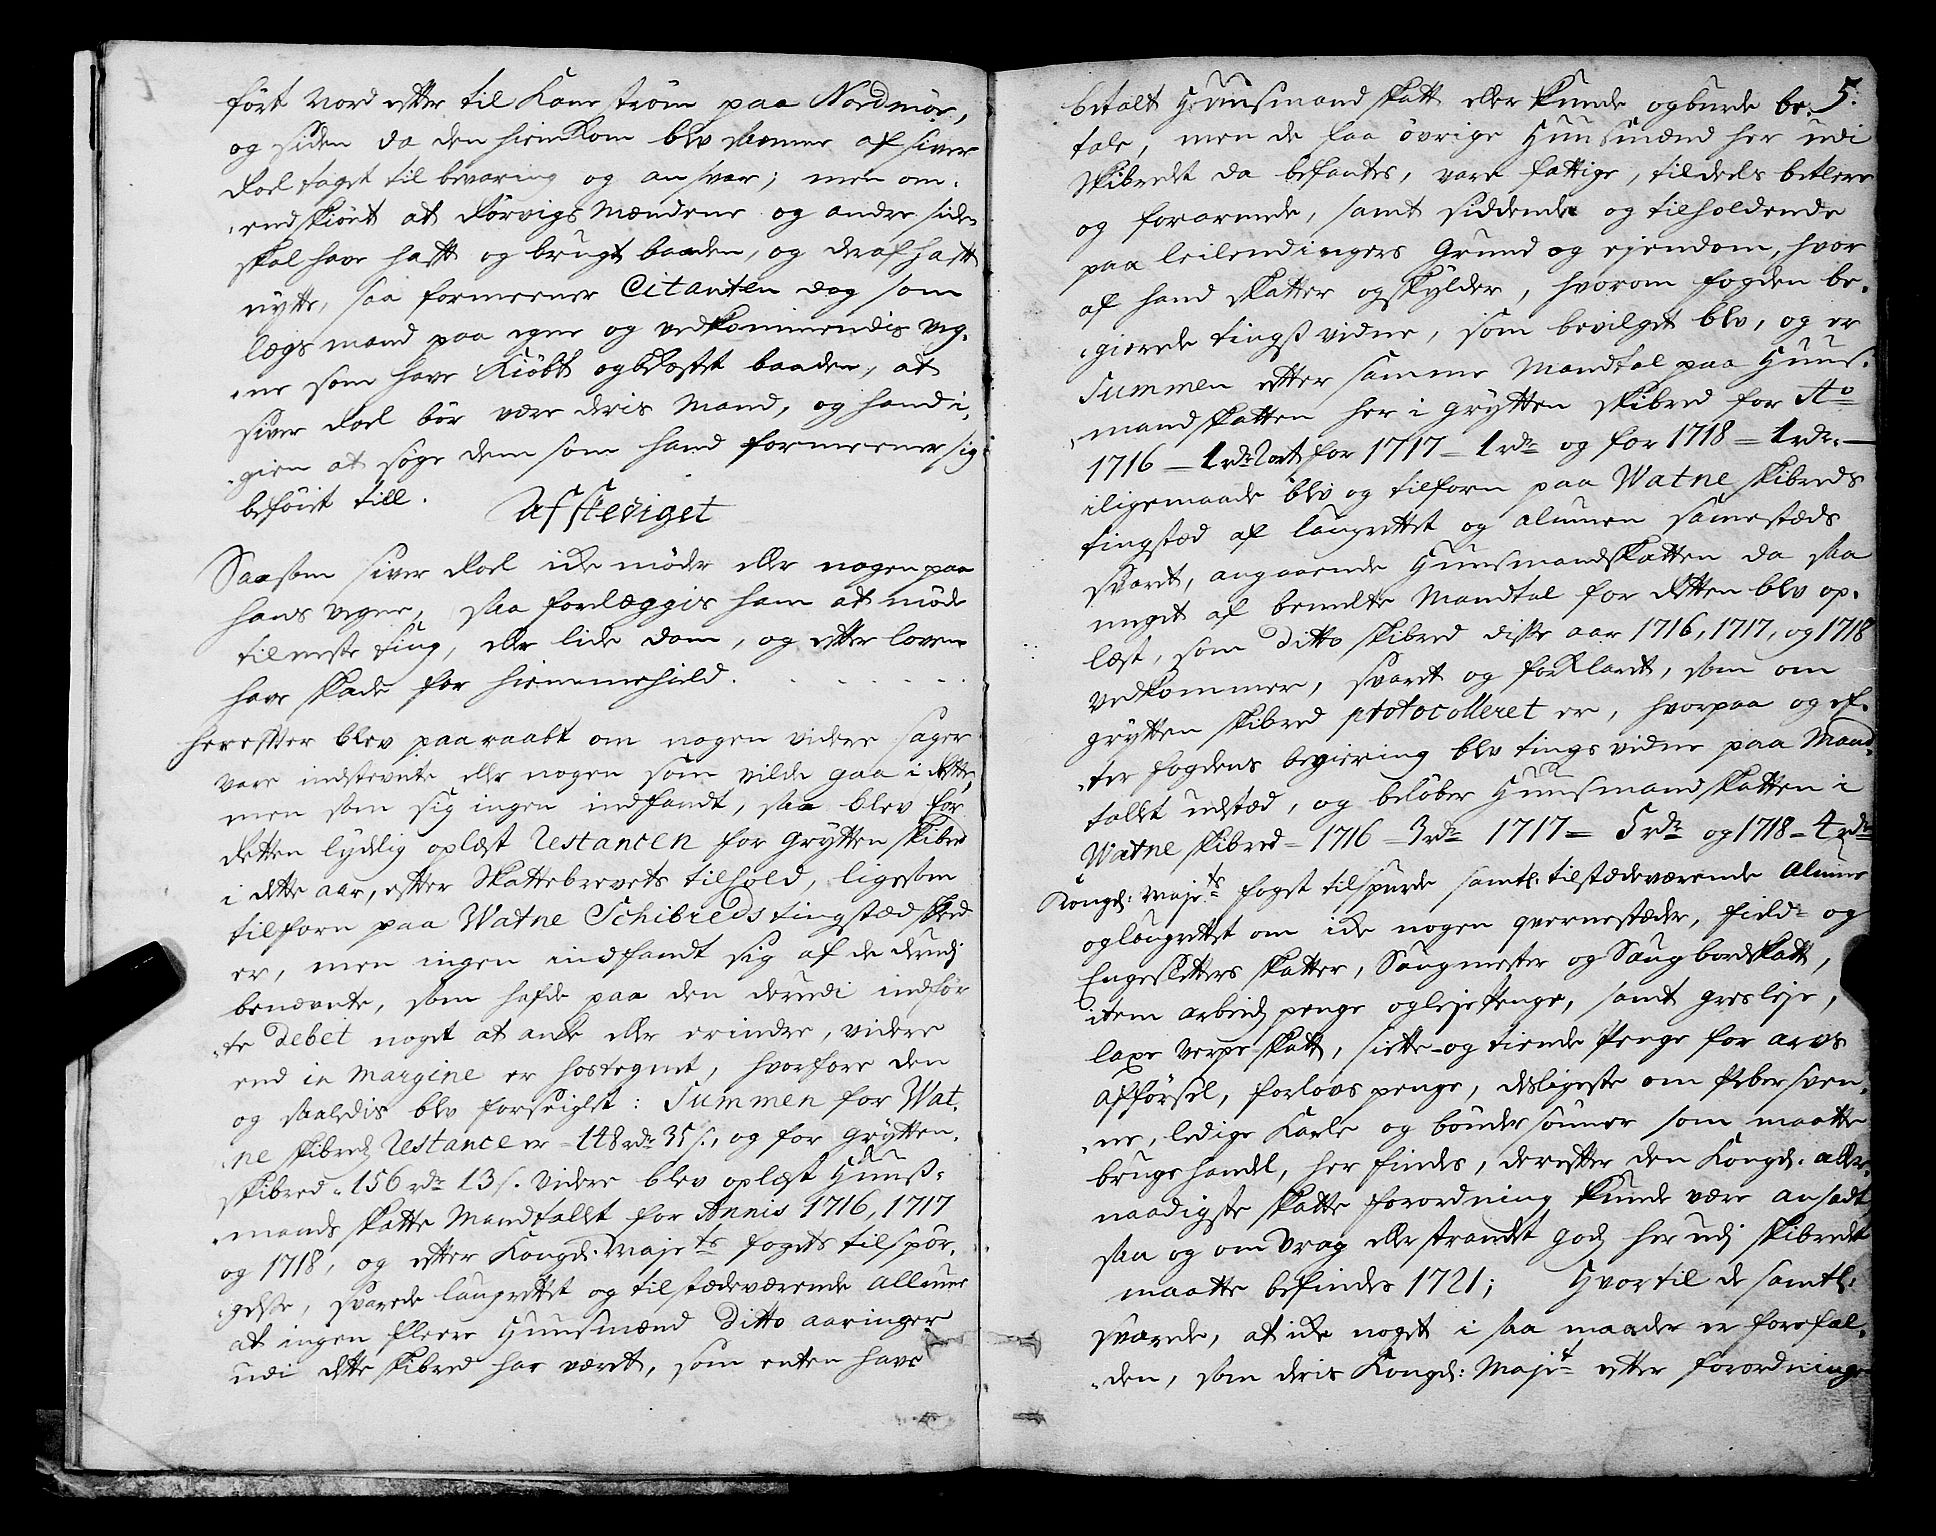 ført Nord efter til Kanestrøm paa Nordmør,
og siden da den hiemkom blev samme af Siver
Roel taget til bevaring og ansvar; men om-
endskiönt at Rörvigs Mændene og andre siden
skal have hafft og brugt baaden, og deraf hafft
nytte, saa formeener Citanten dog som
lægsmand paa egne og vedkommendis veg-
ne som have Kiöbt og bekostet baaden, at
Siver Roel bör være deris Mand, og hand i-
gien at söge dem som hand formeener sig
beföiet till.
Afskediget
Saasom Siver Roel icke möder eller nogen paa
hans vegne, saa forlæggis ham at möde
til neste ting, eller lide dom, og efter loven
have skade for hiemmesidd.
Herefter blev paaraabt om nogen videre sager
vare indstevnte eller nogen som vilde gaa i rette,
men som sig ingen indfandt, saa blev for
Retten lydelig oplæst Restancen for Grytten skibred
i dette aar, efter Skattebrevets tilhold, ligesom
tilforn paa Watne Schibreds tingstæd skeed
er, men ingen indfandt sig af de derudj
benævnte, som hafde paa den derudi indför-
te Debet noget at anke eller erindre, videre
end in Margine er hostegnt, hvorfore den
og saaledis blev forseiglet: Summen for Wat-
ne skibredj Restance er 148 rdr 35 s., og for Grytten-
skibred 156 rdr 13 s. Videre blev oplæst Huuss-
mands skatte Mandtallet for Annis 1716, 1717
og 1718, og efter Kongel: Majets fogets tilspör-
gelse, svarede laugrettet og tilstædeværende Allmue
at ingen fleere Huusmænd Ditto aaringer
udi dette skibred har været, som enten have
5.
betalt Huusmand skatt eller kunde og burde be-
tale, men de faa övrige Huusmænd her udi
skibredet da befantes, vare fattige, tildeels betlere
og forarmede, samt siddende og tilholdende
paa leilendingers Grund og ejendom, hvor
af hand skatter og skylder, hvorom fogden be-
gierede tingssvidne, som bevilget blev, og er
Summen efter samme Mandtal paa Huus-
mandskatten her i Grytten skibred for Ao
1716 – 1 rdr 2 ort for 1717 – 1 rdr og for 1718 – 1 rdr. –
iligemaade blev og tilforn paa Watne skibreds
tingstæd af laugrettet og almuen samestæds
svaret, angaaende Huusmandskatten da saa
meget af bemelte Mandtal for Retten blev op-
læst, som Ditto skibred disse aar 1716, 1717, og 1718
vedkommer, svaret og forklaret, som om
Grytten skibred ptotocolleret er, hvorpaa og ef-
ter fogdens begiering blev tings vidne paa Mand-
tallet udstæd, og belöber Huusmandskatten i
Watne skibred – 1716 – 3 rdr 1717 – 5 rdr og 1718 – 4 rdr
Kongel: Majets foget tilspurde samtl. tilstædeværende Almue
og laugrettet om icke nogen qvernestæder, field- og
Engesletters skatter, Saugmester og Saugbordskatt,
item arbeidz penge og leje penge, samt gresleje,
laxe verpe skatt, siette- og tiende Penge for arvs
afförsel, forlovs penge, desligeste om Pebersven-
ne, ledige Karle og bönder sönner som maatte
bruge handel, her findes, derefter den Kongel: aller-
naadigste skatte forordning kunde være ansadt
saa og om Vrag eller strandet godz her udj skibredet
maatte befindes 1721; Hvortil de samtl:
svarede, at icke noget i saa maader er forefal-
den, som deris Kongel: Majet efter forordninge